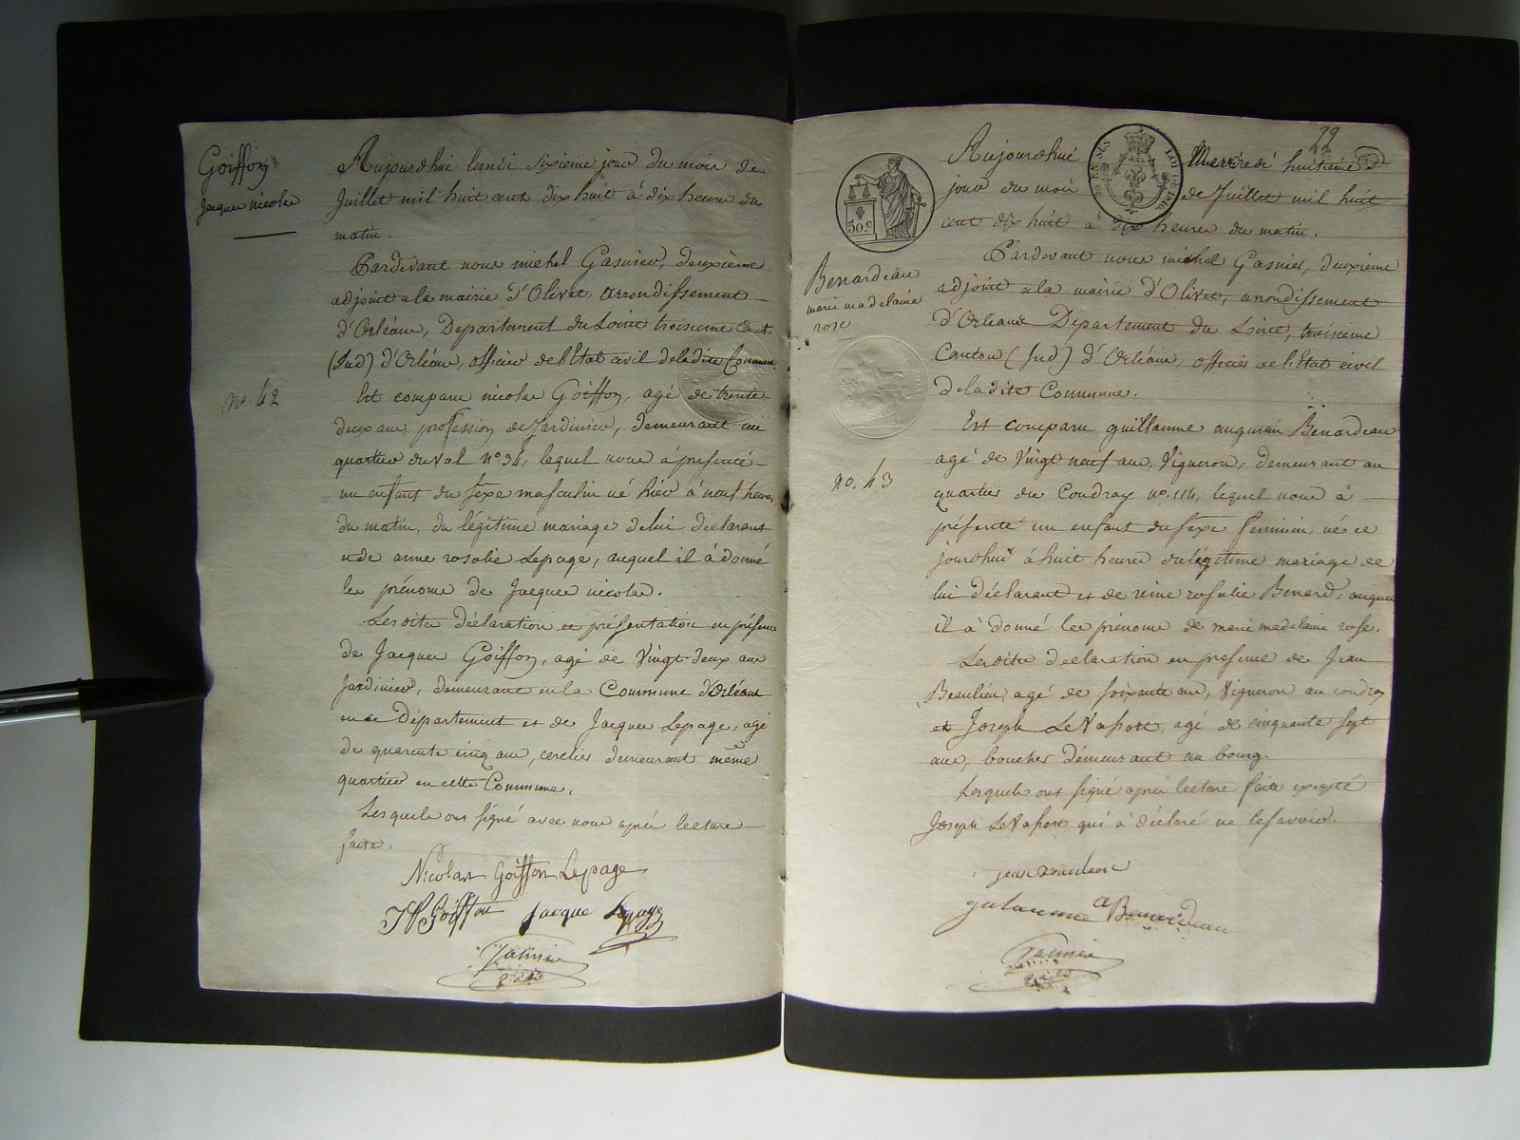 Goiffon
Jacques nicolas
Aujourdhui lundi sixieme jour du mois de
Juillet mil huit cent dix huit à dix heures du
matin.
Pardevant nous michel Gasnier, deuxième
adjoint a la mairie d'Olivet, arrondissement
d'Orléans, Département du Loiret troisieme Cant.
(Sud) d'Orléans, officier de l'Etat civil de la dite Commune
no. 42
Est comparu nicolas Goiffon, agé de trente
deux ans, profession de Jardinier, demeurant au
quartier du val n° 34, lequel nous à présenté
un enfant du sexe masculin né hier à neuf heures
du matin, du légitime mariage de lui declarant
et de anne rosalie Lepage, auquel il à donné
les prénoms de Jacques nicolas.
Lesdites déclaration et présentation en présence
de Jacques Goiffon, agé de Vingt deux ans
Jardinier, demeurant en la Commune d'Orléans
en ce Département et de Jacques Lepage, agé
de quarente cinq ans, cerclier demeurant même
quartier en cette Commune.
Lesquels ont signé avec nous après lecture
faite.
Nicolas Goiffon Lepage
Goiffon Jacque Lepage
Gasnier
79
50 c
Aujourdhui Mercredi huitième
jour du mois de Juillet mil huit
cent dix huit à dix heures du matin.
Benardeau
marie madelaine
rose
Pardevant nous michel Gasnier, deuxième
adjoint a la mairie d'Olivet, arrondissement
d'Orléans Département du Loiret, troisieme
Canton (Sud) d'Orléans, officier de l'état civil
de la dite Commune.
no. 43
Est comparu guillaume Benardeau
agé de Vingt neuf ans, Vigneron, demeurant au
quartier du Coudray no. 114, lequel nous à
présenté un enfant du sexe feminin, né ce
jourdhui à huit heures du légitime mariage de
lui déclarant et de reine rosalie Benard, auquel
il à donné les prénoms de marie madelaine rose.
Lesdites declaration en presence de Jean
Beaulieu, agé de soixante ans, Vigneron au coudray
et Joseph LeVasort, agé de cinquante sept
ans, boucher demeurant au bourg.
Lesquels ont signé après lecture faite excepté
Joseph LeVasort qui à déclaré ne le savoir.
guilaume a Benardeau
Gasnier